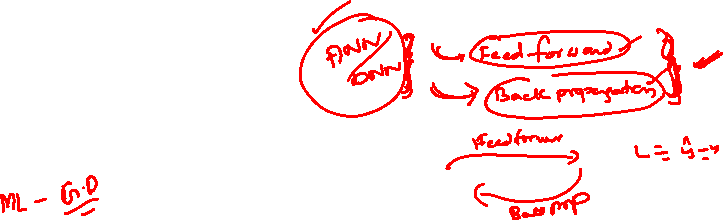 ANN/
DNN
Feed forward
Back propagation
Feed forward
L = ŷ - y
Back prop
ML - G.D